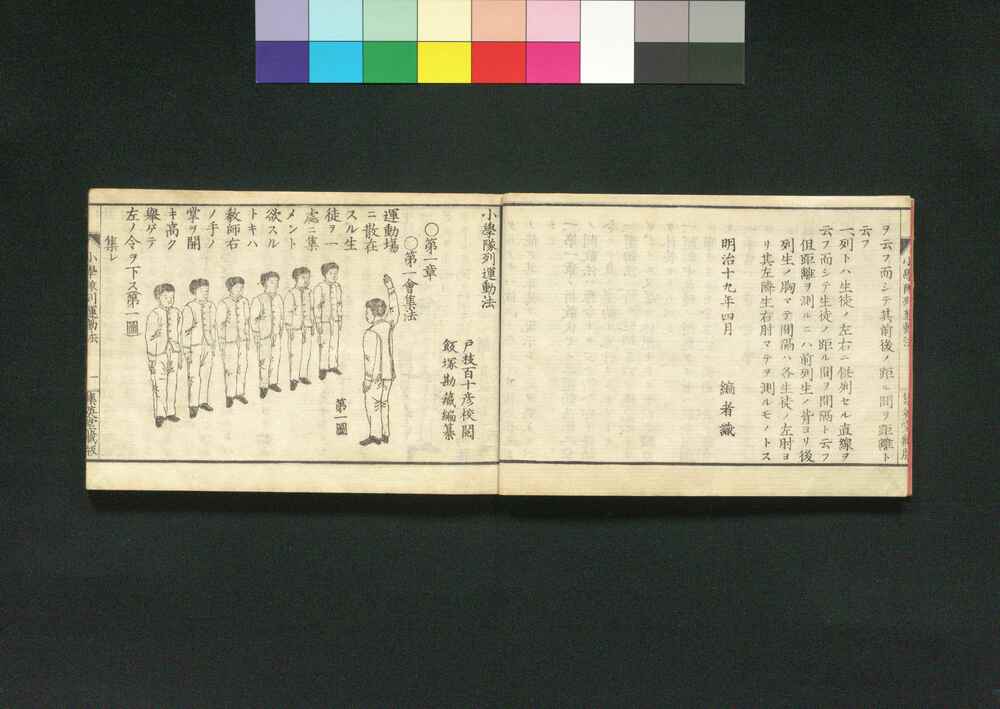 ヲ云フ而シテ其前後ノ距ル間ヲ距離ト
云フ
一列トハ生徒ノ左右ニ併列セル直線ヲ
云フ而シテ生徒ノ距ル間ヲ間隔ト云フ
但距離ヲ測ルニハ前列生ノ背ヨリ後
列生ノ胸マテ間隔ハ各生徒ノ左肘ヨ
リ其左隣生右肘マテヲ測ルモノトス
明治十九年四月
編者識
小學隊列運動法
戸枝百十彦校閲
飯塚勘藏編纂
〇第一章
〇第一會集法
運動場
ニ散在
スル生
徒ヲ一
處ニ集
メント
欲スル
トキハ
教師右
ノ手ノ
掌ヲ開
キ高ク
擧ゲテ
左ノ令ヲ下ス第一圖
集レ
第一圖
小學隊列運動法
一
集英堂藏版